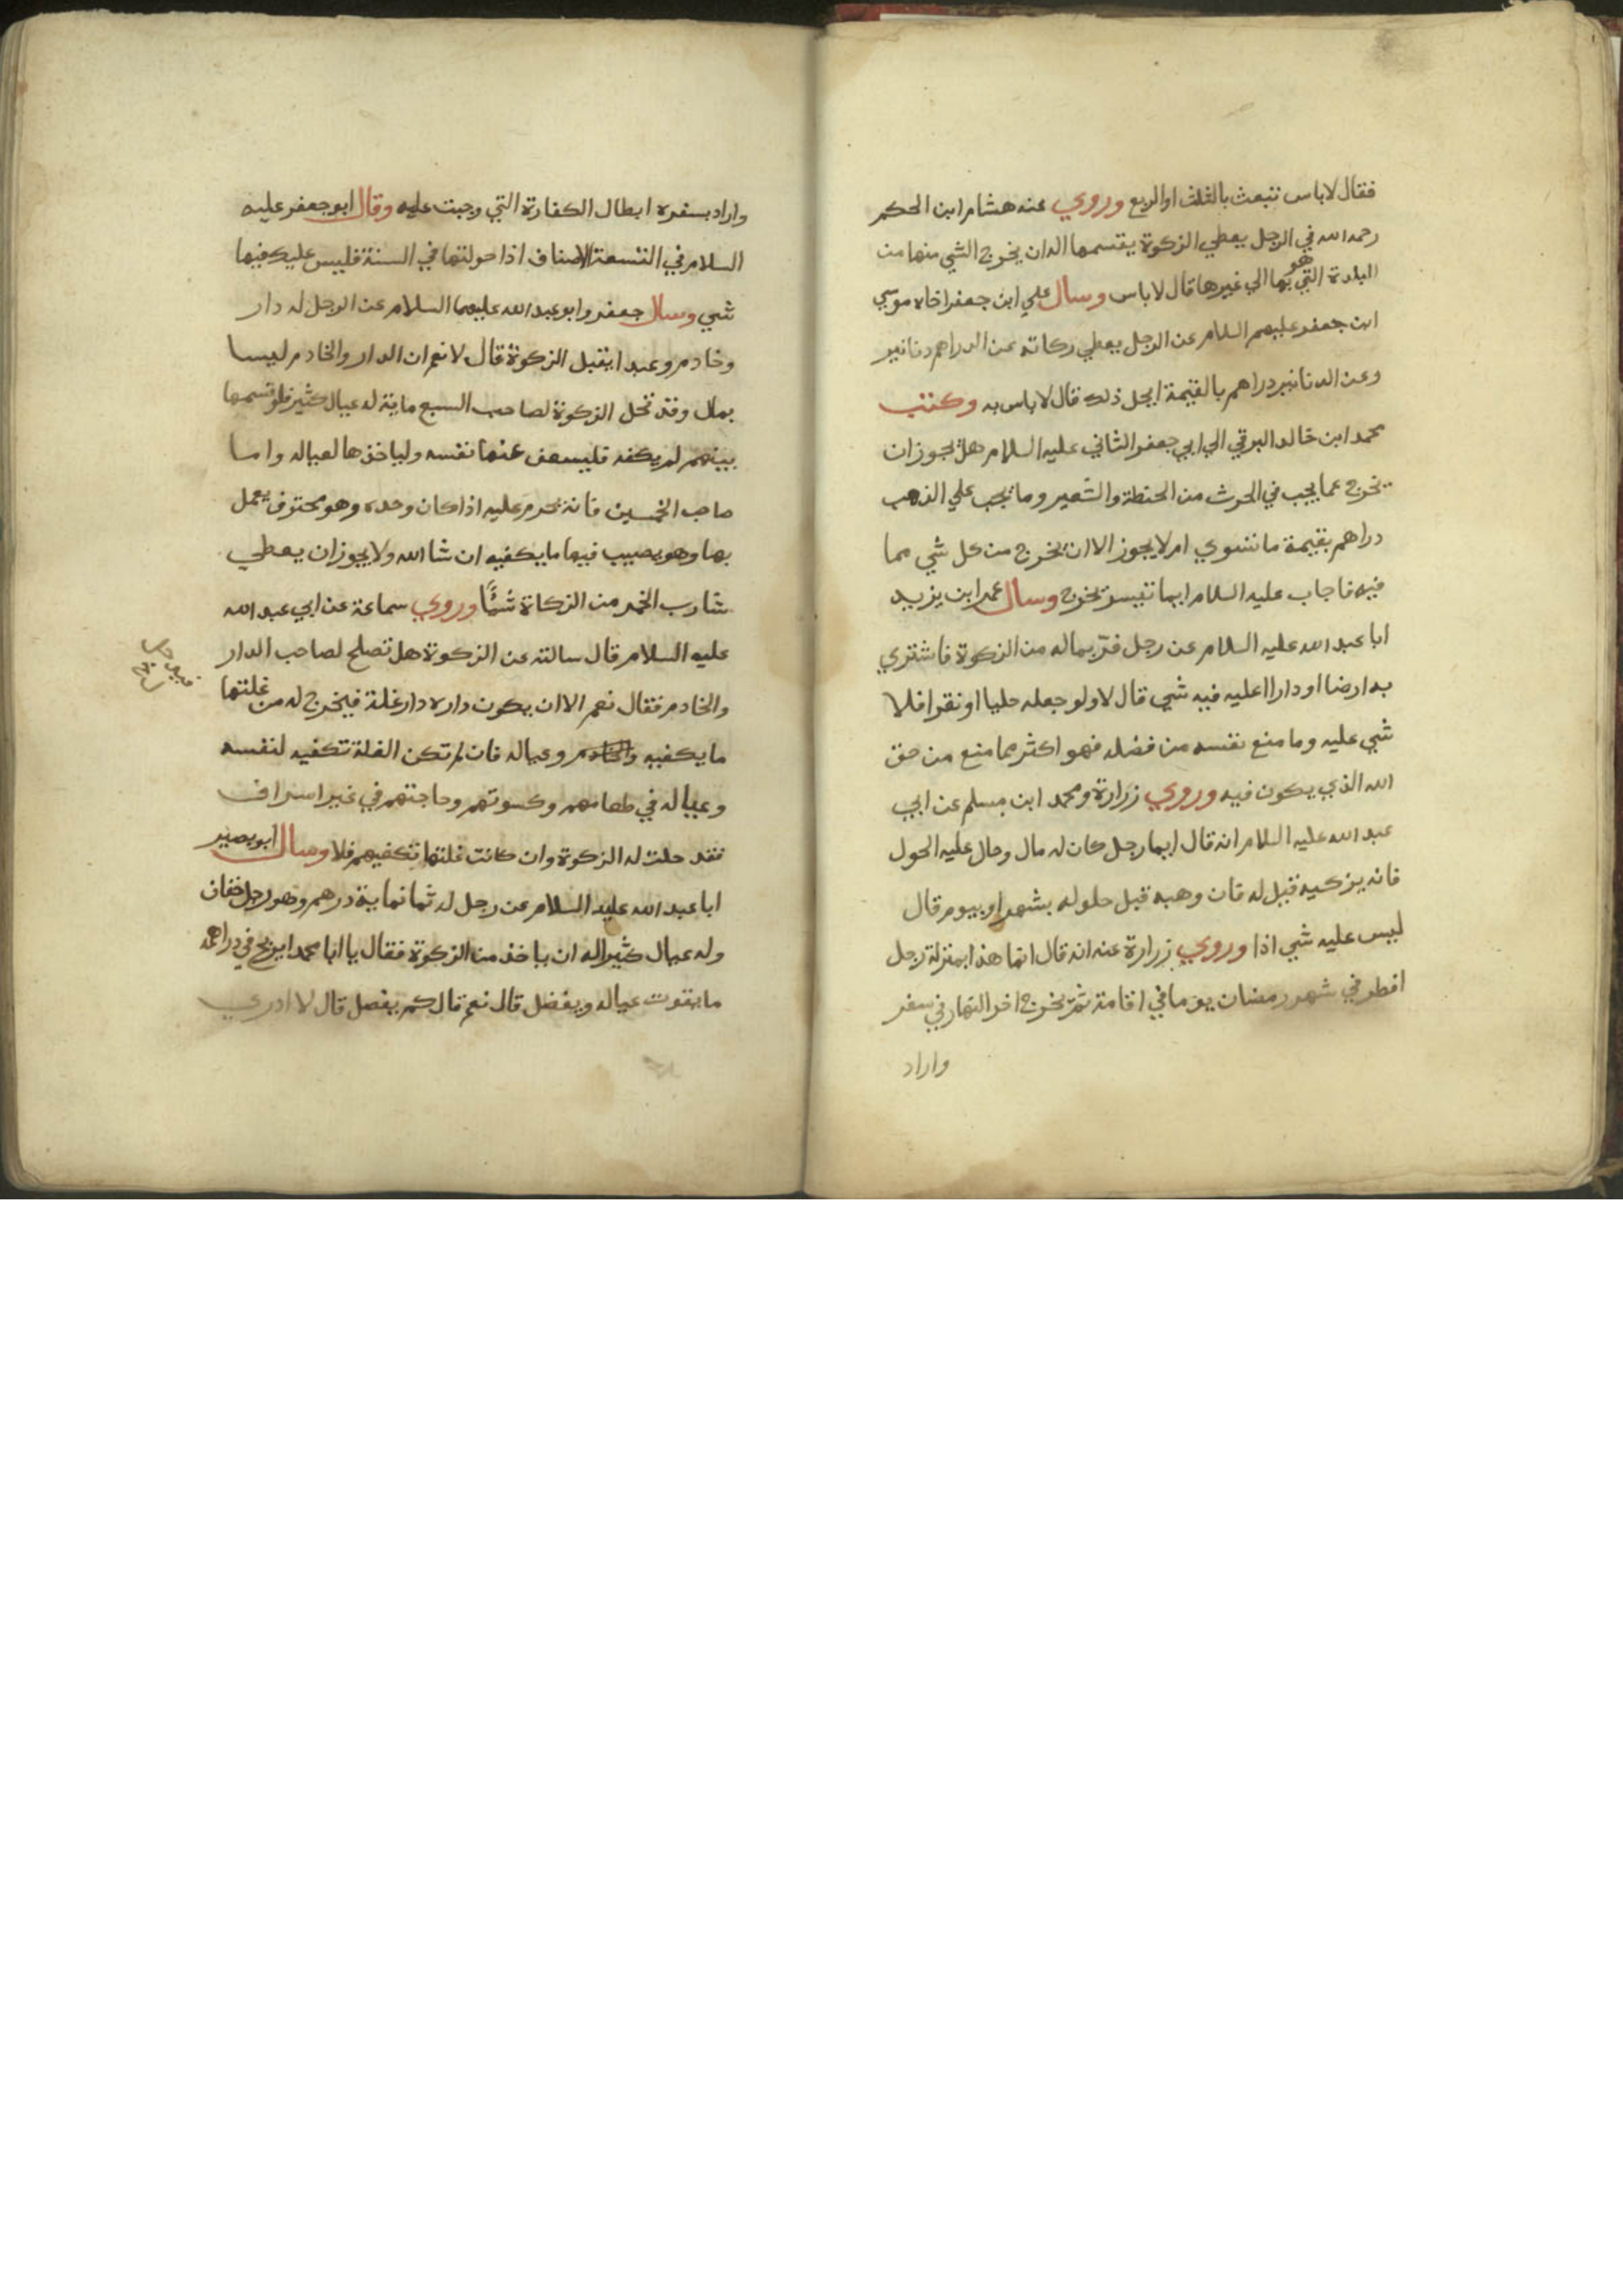 فقال لا باس تبعث بالثلث او الربع وروي عنه هشام ابن الحكم
رحمه الله في الرجل يعطي الزكوة يقسمها اله ان يخرج الشي منها من
البلدة التي هو بها الي غيرها قال لا باس وسال علي ابن جعفر اخاه موسي
ابن جعفر عليهم السلام عن الرجل يعطي زكاته عن الدراهم دنانير
وعن الدنانير دراهم بالقيمة ايحل ذلك قال لا باس به وكتب
محمد ابن خالد البرقي الي ابي جعفر الثاني عليه السلام هل يجوز ان
يخرج عما يجب في الحرث من الحنطة والشعير وما يجب علي الذهب
دراهم بقيمة ما تسوي ام لا يجوز الا ان يخرج من كل شي مما
فيه فاجاب عليه السلام ايما تيسر يخرج وسال عمر ابن يزيد
ابا عبد الله عليه السلام عن رجل فر بماله من الزكوة فاشتري
به ارضا او دارا اعليه فيه شي قال لا ولو جعله حليا او نقرا فلا
شي عليه وما منع نفسه من فضله فهو اكثر مما منع من حق
الله الذي يكون فيه وروي زرارة ومحمد ابن مسلم عن ابي
عبد الله عليه السلام انه قال ايما رجل كان له مال وحال عليه الحول
فانه يزكيه قيل له فان وهبه قبل حلوله بشهر او بيوم قال
ليس عليه شي اذا وروي زرارة عنه انه قال انما هذا بمنزلة رجل
افطر في شهر رمضان يوما في اقامة ثم يخرج اخر النهار في سفر
واراد
واراد بسفره ابطال الكفارة التي وجبت عليه وقال ابو جعفر عليه
السلام في التسعة الاصناف اذا حولتها في السنة فليس عليك فيها
شي وسال جعفر وابو عبد الله عليهما السلام عن الرجل له دار
وخادم وعبد ايقبل الزكوة قال لا نعم ان الدار والخادم ليسا
بمال وقد تحل الزكوة لصاحب السبع ماية له عيال كثير فلو قسمها
بينهم لم يكفه فليسعف عنها نفسه ولياخذها لعياله واما
صاحب الخمسين فانه يحرم عليه اذا كان وحده وهو محترف يعمل
بها وهو يصيب فيها ما يكفيه ان شا الله ولا يجوز ان يعطي
شارب الخمر من الزكاة شئًا وروي سماعة عن ابي عبد الله
عليه السلام قال سالته عن الزكوة هل تصلح لصاحب الدار
والخادم فقال نعم الا ان يكون داره دار غلة فيخرج له من غلتها
ما يكفيه والخادم وعياله فان لم تكن الغلة تكفيه لنفسه
وعياله في طعامهم وكسوتهم وحاجتهم في غير اسراف
فقد حلت له الزكوة وان كانت غلتها تكفيهم فلا وسال ابو بصير
ابا عبد الله عليه السلام عن رجل له ثمانماية درهم وهو رجل خفاف
وله عيال كثير اله ان ياخذ من الزكوة فقال يا ابا محمد ايربح في دراهمه
ما يقوت عياله ويفضل قال نعم قال كم يفضل قال لا ادري